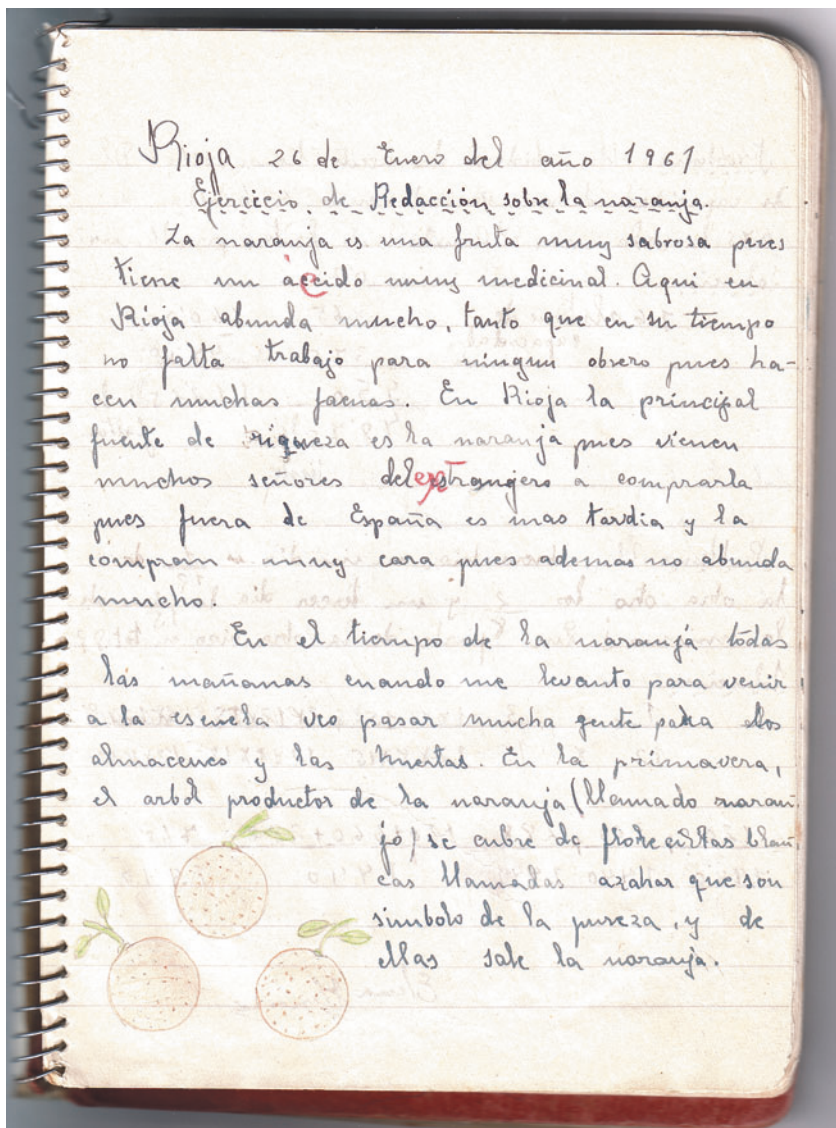 Rioja 26 de Enero del año 1961
Ejercicio de Redacción sobre la naranja.
La naranja es una fruta muy sabrosa pues
tiene un áccido muy medicinal. Aqui en
Rioja abunda mucho, tanto que en su tiempo
no falta trabajo para ningun obrero pues ha-
cen muchas faenas. En Rioja la principal
fuente de riqueza es la naranja pues vienen
muchos señores del extrangero a comprarla
pues fuera de España es mas tardia y la
compran muy cara pues ademas no abunda
mucho.
En el tiempo de la naranja todas
las mañanas cuando me levanto para venir
a la escuela veo pasar mucha gente para los
almacenes y las huertas. En la primavera,
el arbol productor de la naranja (llamado naran-
jo) se cubre de florecistas blan-
cas llamadas azahar que son
simbolo de la pureza, y de
ellas sale la naranja.